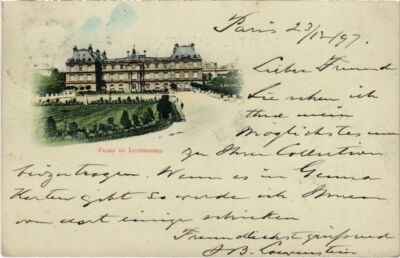 Paris 23/12/97.
Lieber Freund
Sie sehen ich
thue mein
Möglichstes um
PALAIS DU LUXEMBOURG
zu Ihrer Collection
beizutragen Wenn es in Genua
Karten gibt so werde ich Ihnen
von dort einige schicken
Freundlichst grüssend
B. Loewenstein